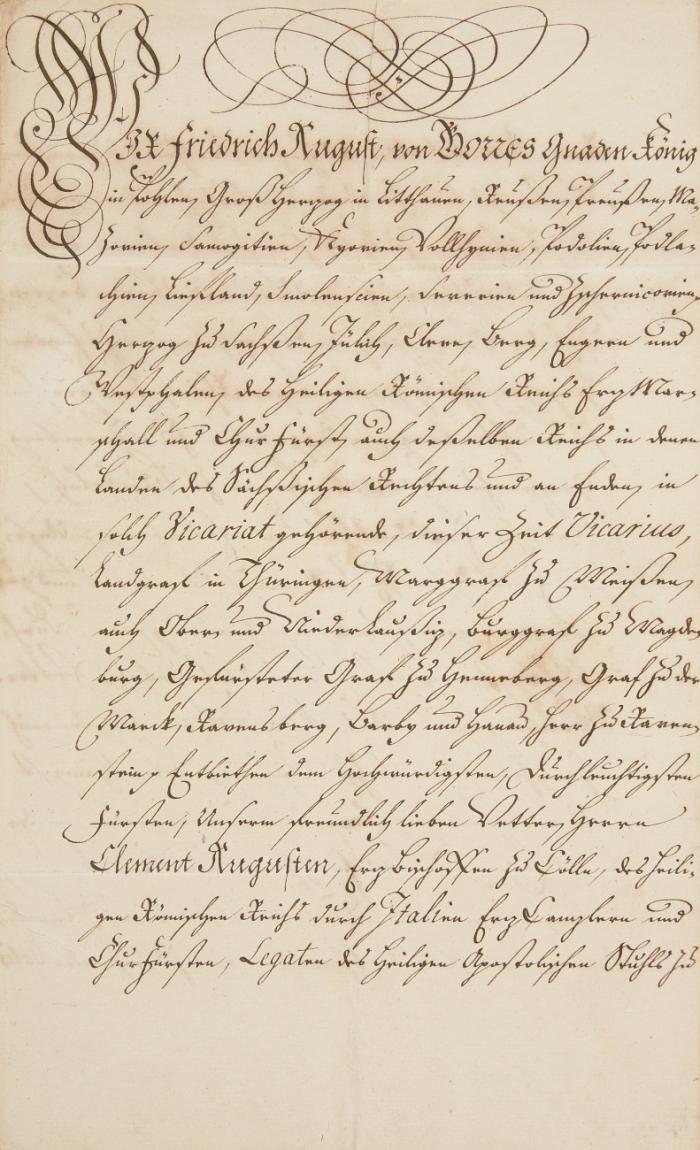 WIR Friedrich August, von GOTTES Gnaden König
in Pohlen, Groß Herzog in Litthauen, Reußen, Preußen, Ma-
zovien, Samogitien, Kyovien, Vollhynien, Podolien, Podla-
chien, Liefland, Smolenscien, Severien und Zschernicovien,
Herzog zu Sachßen, Jülich, Cleve, Berg, Engern und
Westphalen, des Heiligen Römischen Reichs Erz Mar-
schall und Chur Fürst, auch deßelben Reichs in denen
Landen des Sächßischen Rechtens und an Enden, in
solch Vicariat gehörende, dieser Zeit Vicarius,
Landgraf in Thüringen, Marggraf zu Meißen,
auch Ober- und Niederlaußiz, Burggraf zu Magde-
burg, Gefürsteter Graf zu Henneberg, Graf zu der
Marck, Ravensberg, Barby und Hanau, Herr zu Raven-
stein p Entbiethen dem Hochwürdigsten, Durchleuchtigsten
Fürsten, Unserm freundlich lieben Vetter, Herrn
Clement Augusten, Erz Bischoffen zu Cölln, des Heili-
gen Römischen Reichs durch Italien Erz Canzlern und
Chur Fürsten, Legaten des Heiligen Apostolischen Stuhls zu